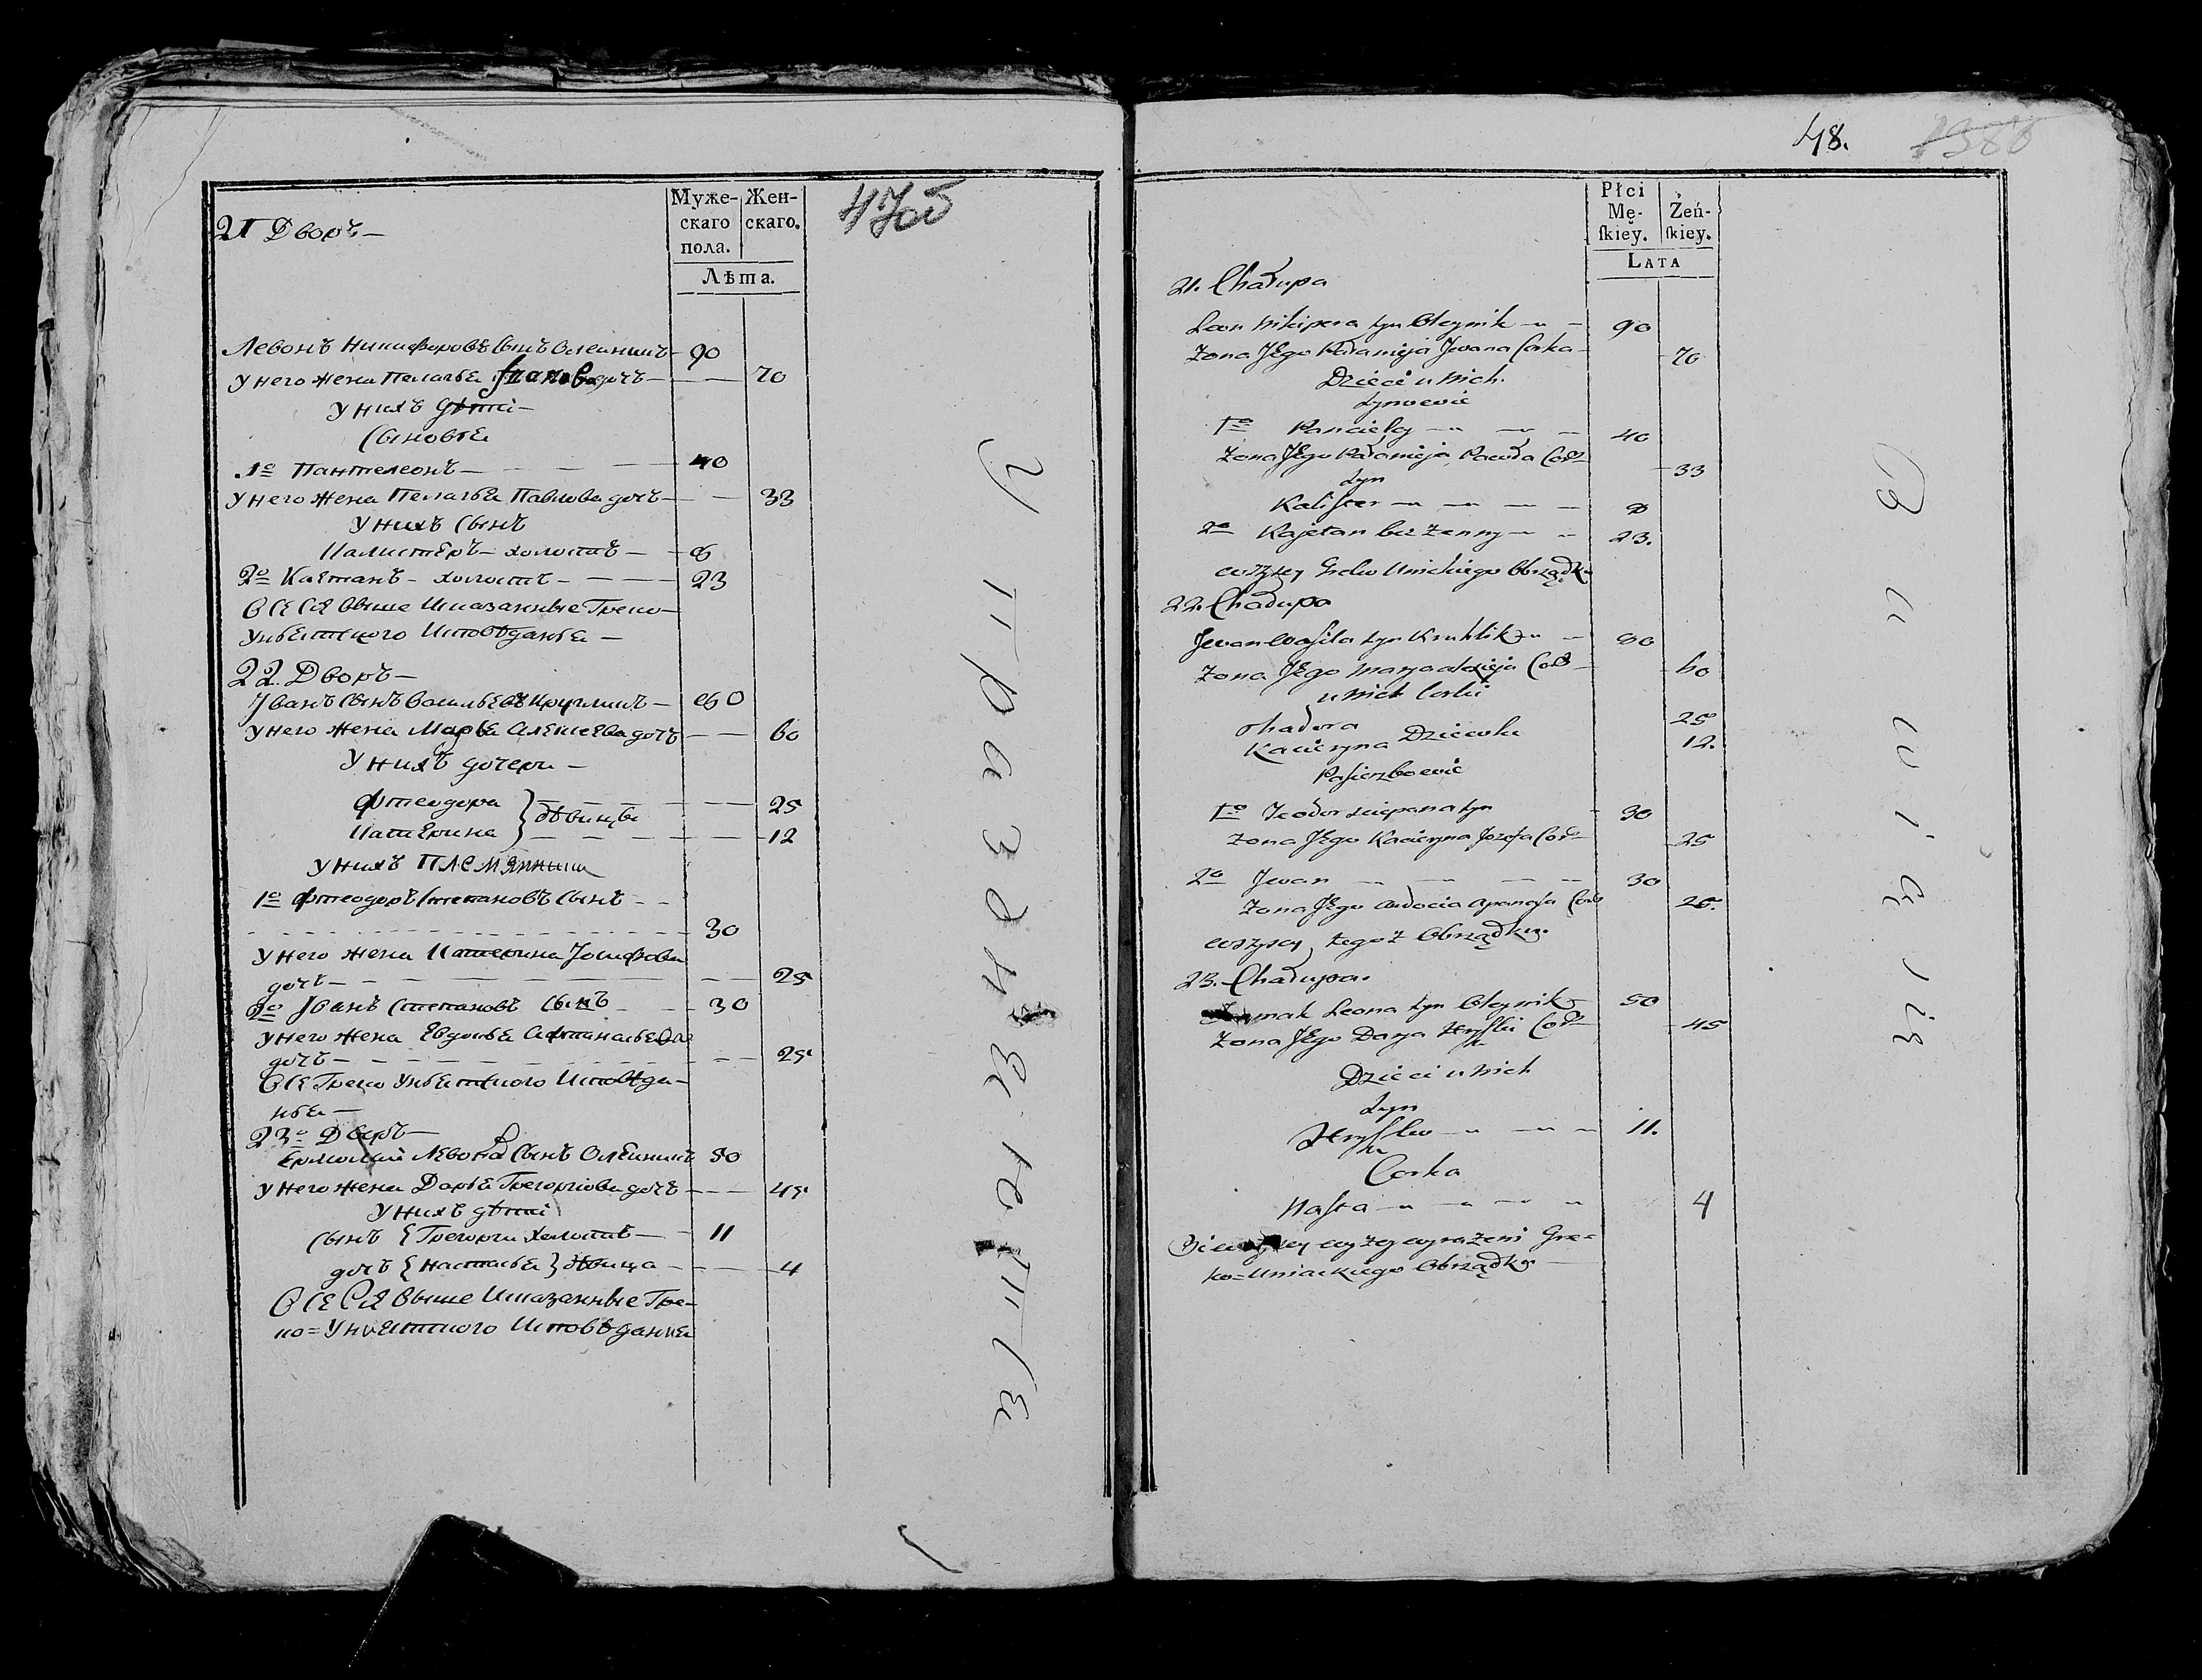 47об
21 Дворъ —
Муже- Жен-
скаго скаго.
пола.
Лѣта.
Левонъ Никифоровъ Сынъ Олейникъ 90
у него жена Пелагѣя Иванова дочь — — 70
у нихъ дѣти —
Сыновья
1о Пантелеонъ — — — 40
у него жена Пелагѣя Павлова дочь — — 33
у нихъ Сынъ
Калистеръ — холостъ — 8
2о Каетанъ — холостъ — — — 23
Всѣ Сія Выше Показанные Греко-
Унѣятского Исповѣданья —
22 Дворъ —
Иванъ Сынъ Васильевъ Кругликъ — 80
у него жена Марья Алексеева дочь — — 60
у нихъ дочери —
Фтеодора } — — — 25
Катерина } дѣвицы — — — 12
у нихъ племянники
1о Фтеодоръ Степановъ Сынъ — —
30
у него жена Катерина Иосифова
дочь — — — 25
2о Иванъ Степановъ Сынъ — 30
у него жена Евдокья Афтанасьева
дочь — — — 25
Всѣ Греко Унѣятского Исповѣда-
нья —
23о Дворъ —
Ермолай Левона Сынъ Олейникъ 50
у него жена Дарья Грегоргиова дочь — — 45
у нихъ дѣти
сынъ { Грегорги холостъ — 11
дочь { Настасья } дѣвица — — 4
Всѣ Сія Выше Показанные Гре-
ко=Униятского Исповѣдания
УПРАЗДНЕЮТСЕ
48.
Płci
Mę- Żeń-
ſkiey. ſkiey.
LATA
21. Chałupa
Leon Nikipera syn Oleynik — 90
Zona Jego Pałamija Jwana Corka — 70
Dzieci u Nich.
Synowie
1o Pancieley — — — 40
Zona Jego Pałamija Pawła Cor — 33
Syn
Kalister — — — 8
2o Kajetan bez Zenny — — 23.
wszyscy Greko Unickiego Obrządku
22. Chałupa
Jwan Wasila syn Kruhlik — 80
Zona Jego Marya Cor — 60
u Nich Corki
Chadora 25
Kacieryna Dziewki 12.
Pasierzbowie
1o Teodor Sciepana syn — 30
Zona Jego Kacieryna Jozefa Cor — 25
2o Jwan — — — 30
Zona Jego Audocia Apanasa Cor 25.
wszyscy tegoż Obrządku.
23. Chałupa.
Leona syn Oleynik 50
Zona Jego Darya Hryszki Cor — 45
Dzieci u Nich
Syn
Hryszko — — — 11.
Corka
Nasta — — — 4
wyżey wyrażeni Gre=
ko=Uniackiego Obrządku —